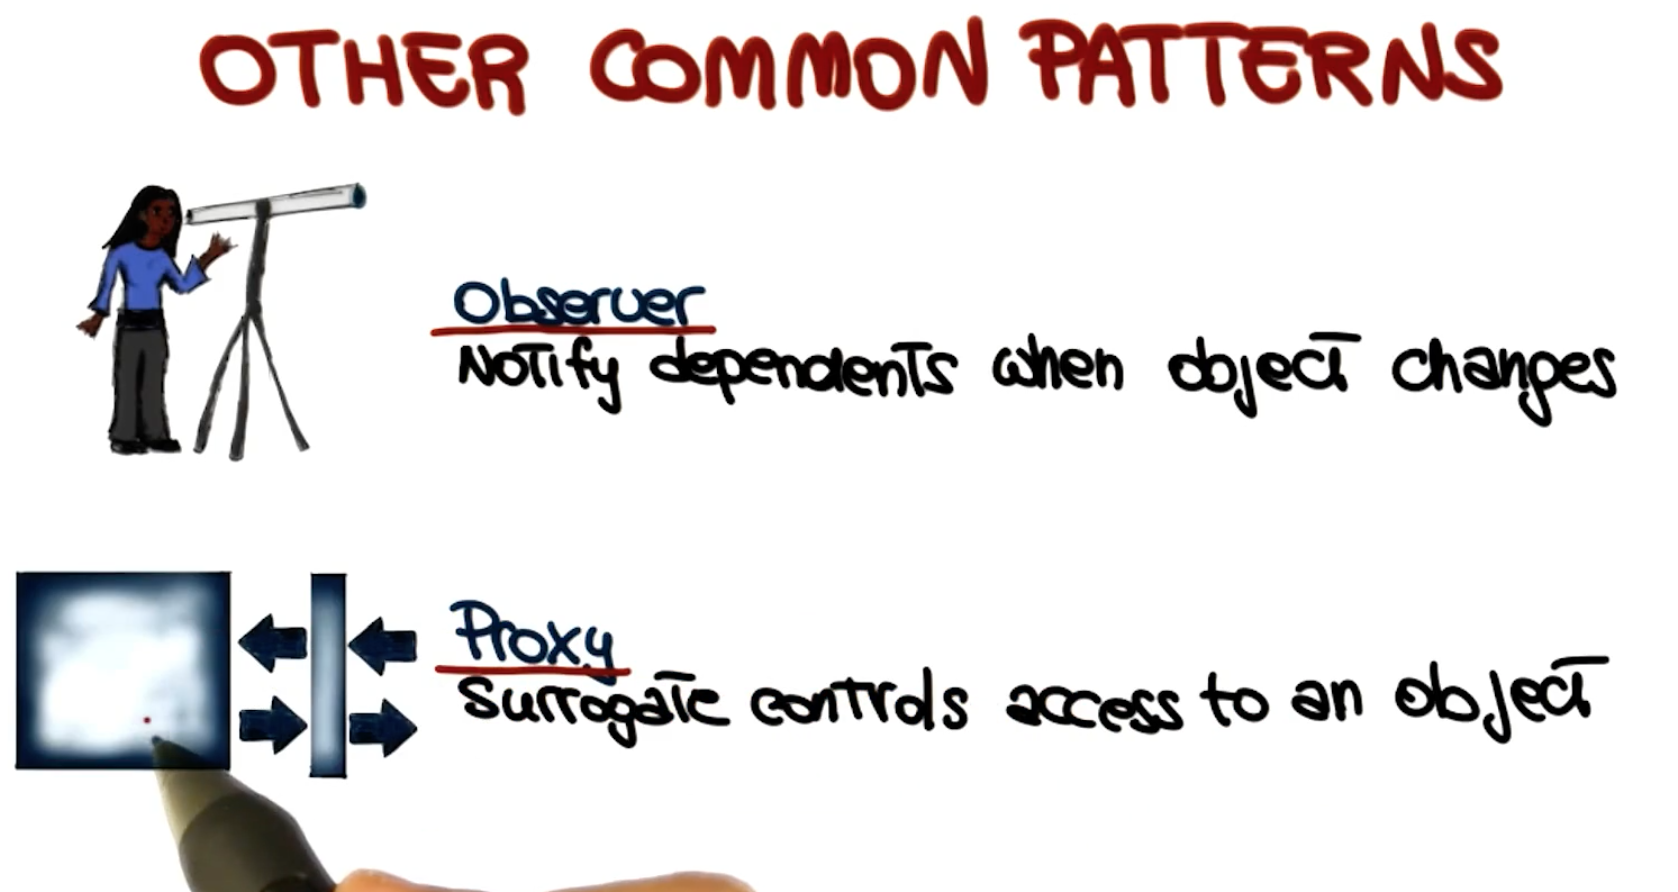 OTHER COMMON PATTERNS
Observer
Notify dependents when object changes
Proxy
Surrogate controls access to an object